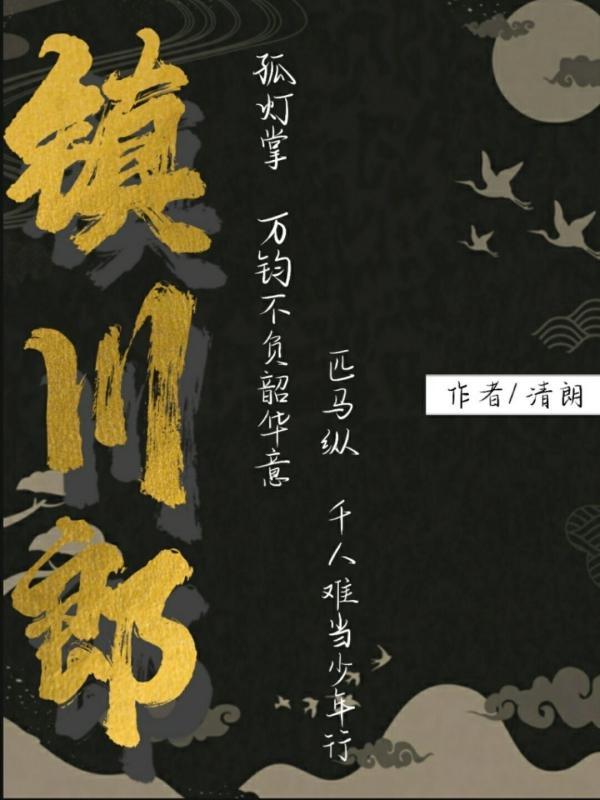 镇川郎
孤灯掌 万钧不负韶华意
匹马纵 千人难当少年行
作者/清朗